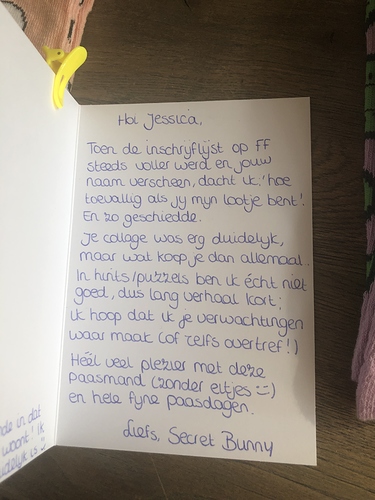 Hoi Jessica,
Toen de inschrijflijst op FF
steeds voller werd en jouw
naam verscheen, dacht ik: 'hoe
toevallig als jij mijn lootje bent'.
En zo geschiedde.
Je collage was erg duidelijk,
maar wat koop je dan allemaal.
In hints/puzzels ben ik écht niet
goed, dus lang verhaal kort:
ik hoop dat ik je verwachtingen
waar maak (of zelfs overtref!)
Héél veel plezier met deze
paasmand (zonder eitjes :=)
en hele fijne paasdagen.
Liefs, Secret Bunny
de in dat
woont! Ik
delijk is